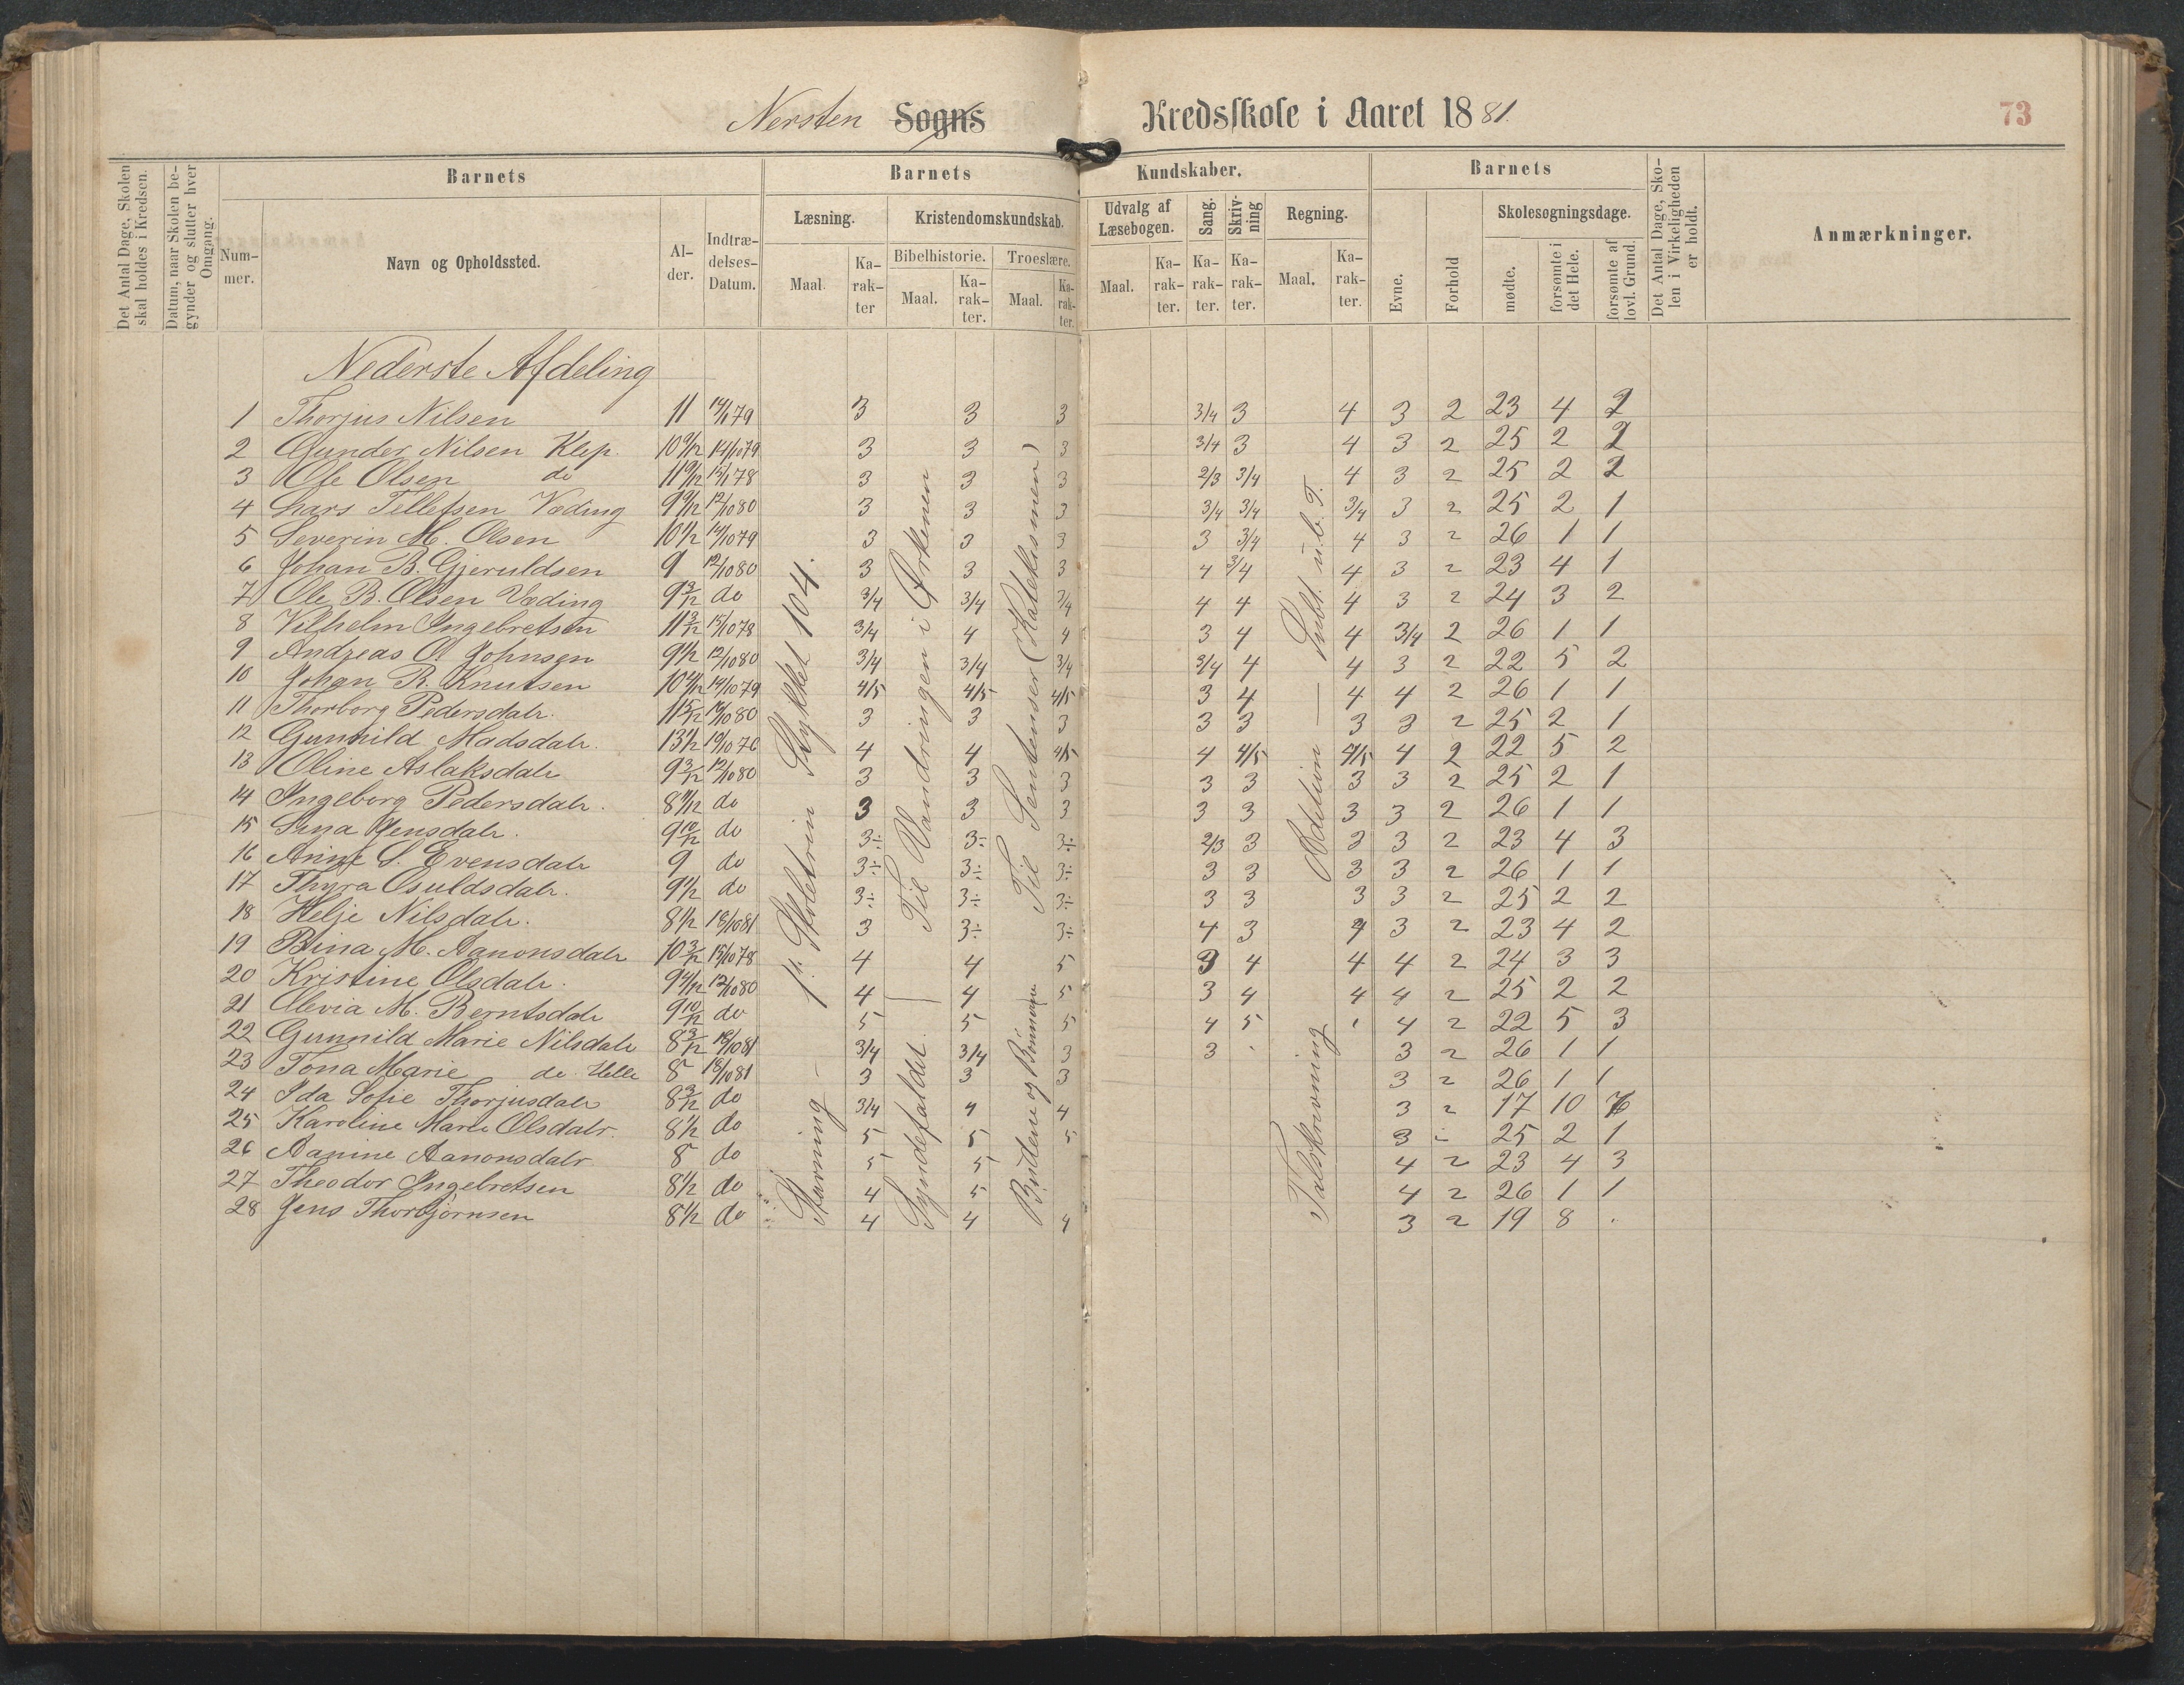 Nersten Sogns Kredsskole i Aaret 1881.
73
Det Antal Dage, Skolen skal holdes i Kredsen.
Datum, naar Skolen begynder og slutter hver Omgang.
Barnets
Nummer.
Navn og Opholdssted.
Alder.
Indtrædelses-Datum.
Barnets Kundskaber.
Læsning.
Maal.
Karakter
Kristendomskundskab.
Bibelhistorie.
Maal.
Karakter.
Troeslære.
Maal.
Karakter.
Udvalg af Læsebogen.
Maal.
Karakter.
Sang.
Karakter.
Skrivning
Karakter.
Regning.
Maal.
Karakter.
Barnets
Evne.
Forhold
Skolesøgningsdage.
mødte.
forsømte i det Hele.
forsømte af lovl. Grund.
Det Antal Dage, Skolen i Virkeligheden er holdt.
Anmærkninger.
Nederste Afdeling
1 Thorjus Nilsen 11 3 3 3 3/4 3 4 3 2 23 4 2
2 Gunder Nilsen Klep. 10 9/12 14/10 79 3 3 3 3/4 3 4 3 2 25 2 2
3 Ole Olsen do 3 3 3 2/3 3/4 4 3 2 25 2 2
4 Lars Tellefsen Væding 12/10 80 3 3 3 3/4 3/4 3/4 3 2 25 2 1
5 Severin M. Olsen 10 1/2 14/10 79 3 3 3 3 3/4 4 3 2 26 1 1
6 Johan B. Gjeruldsen 9 12/10 80 3 3 3 4 3/4 4 3 2 23 4 1
7 Ole B. Olsen Væding 9 3/12 do 3/4 3/4 3/4 4 4 4 3 2 24 3 2
8 Vilhelm Ingebretsen 11 3/12 15/10 78 3/4 4 4 3 4 4 3/4 2 26 1 1
9 Andreas O. Johnsen 9 1/2 12/10 80 3/4 3/4 3/4 3/4 4 4 3 2 22 5 2
10 Johan R. Knutsen 14/10 79 4/5 4/5 4/5 3 4 4 4 2 26 1 1
11 Thorborg Pedersdatr. 11 5/12 3 3 3 3 3 3 3 2 25 2 1
12 Gunhild Madsdatr. 13 1/2 19/10 76 4 4 4/5 4 4/5 4/5 4 2 22 5 2
13 Oline Aslaksdatr 9 3/12 12/10 80 3 3 3 3 3 3 3 2 25 2 1
14 Ingeborg Pedersdatr. 8 11/12 do 3 3 3 3 3 3 3 2 26 1 1
15 Jensdatr. 9 10/12 do 3÷ 3÷ 3÷ 2/3 3 3 3 2 23 4 3
16 Anne S. Evensdatr 9 do 3÷ 3÷ 3÷ 3 3 3 3 2 26 1 1
17 Thyra Osuldsdatr. 9 1/2 do 3÷ 3÷ 3÷ 3 3 3 3 2 25 2 2
18 Helje Nilsdatr. 8 1/2 18/10 81 3 3÷ 3÷ 4 3 4 3 2 23 4 2
19 Bina M. Aanonsdatr 10 3/12 15/10 78 4 4 5 3 4 4 4 2 24 3 3
20 Kristine Olsdatr. 9 4/12 12/10 80 4 4 5 3 4 4 4 2 25 2 2
21 Olevia M. Berntsdatr 9 10/12 do 5 5 5 4 5 4 2 22 5 3
22 Gunnild Marie Nilsdatr 8 3/12 18/10 81 3/4 3/4 3 3 3 2 26 1 1
23 Tona Marie do Helle 8 18/10 81 3 3 3 3 2 26 1 1
24 Ida Sofie Thorjusdatr 8 3/12 do 3/4 4 4 3 2 17 10
25 Karoline Marie Olsdatr. 8 1/2 do 5 5 5 3 25 2 1
26 Aanine Aanonsdatr 8 do 5 5 4 2 23 4 3
27 Theodor Ingebretsen 8 1/2 do 4 5 4 2 26 1 1
28 Jens Thorbjørnsen 8 1/2 do 4 4 4 3 2 19 8
1ste Skoletrin Stykket 104.
Stavning
Til Vandringen i Ørkenen
Syndefaldet
Til Sentenser (Katekismen)
Budene og Bønnerne
Addition — Subt. u. b. T.
Talskrivning